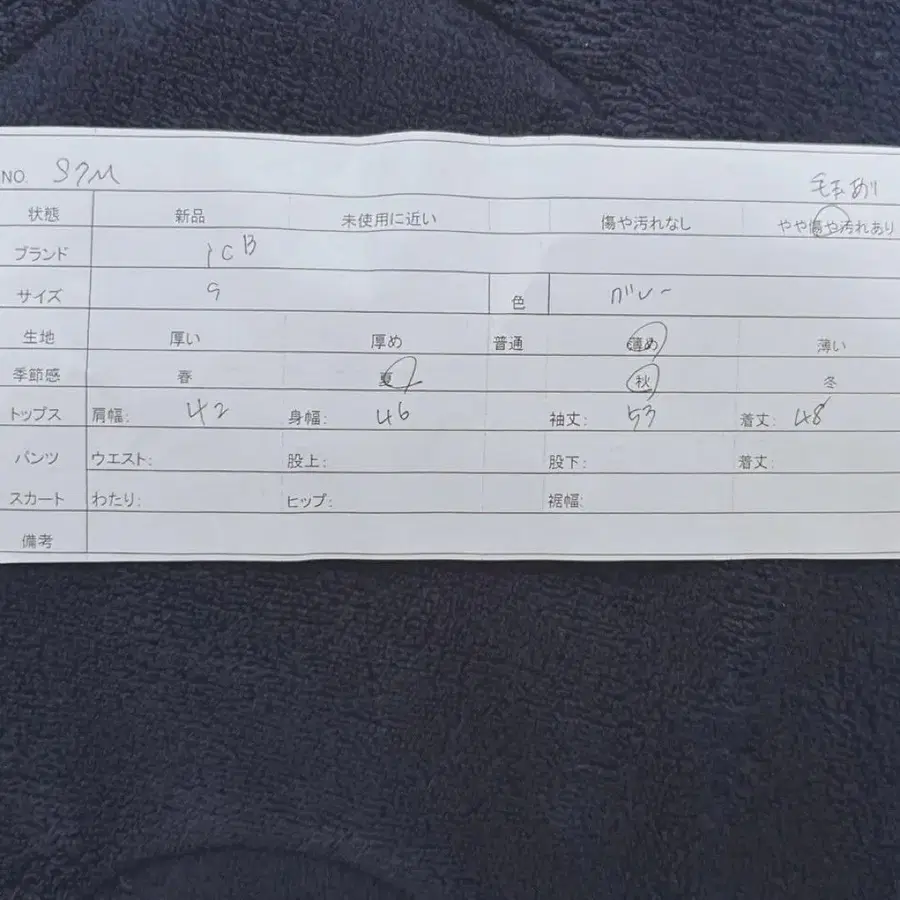 NO. S7M 毛玉あり
状態 新品 未使用に近い 傷や汚れなし やや傷や汚れあり
ブランド ICB
サイズ 9 色 グレー
生地 厚い 厚め 普通 薄め 薄い
季節感 春 夏 秋 冬
トップス 肩幅: 42 身幅: 46 袖丈: 53 着丈: 48
パンツ ウエスト: 股上: 股下: 着丈:
スカート わたり: ヒップ: 裾幅:
備考